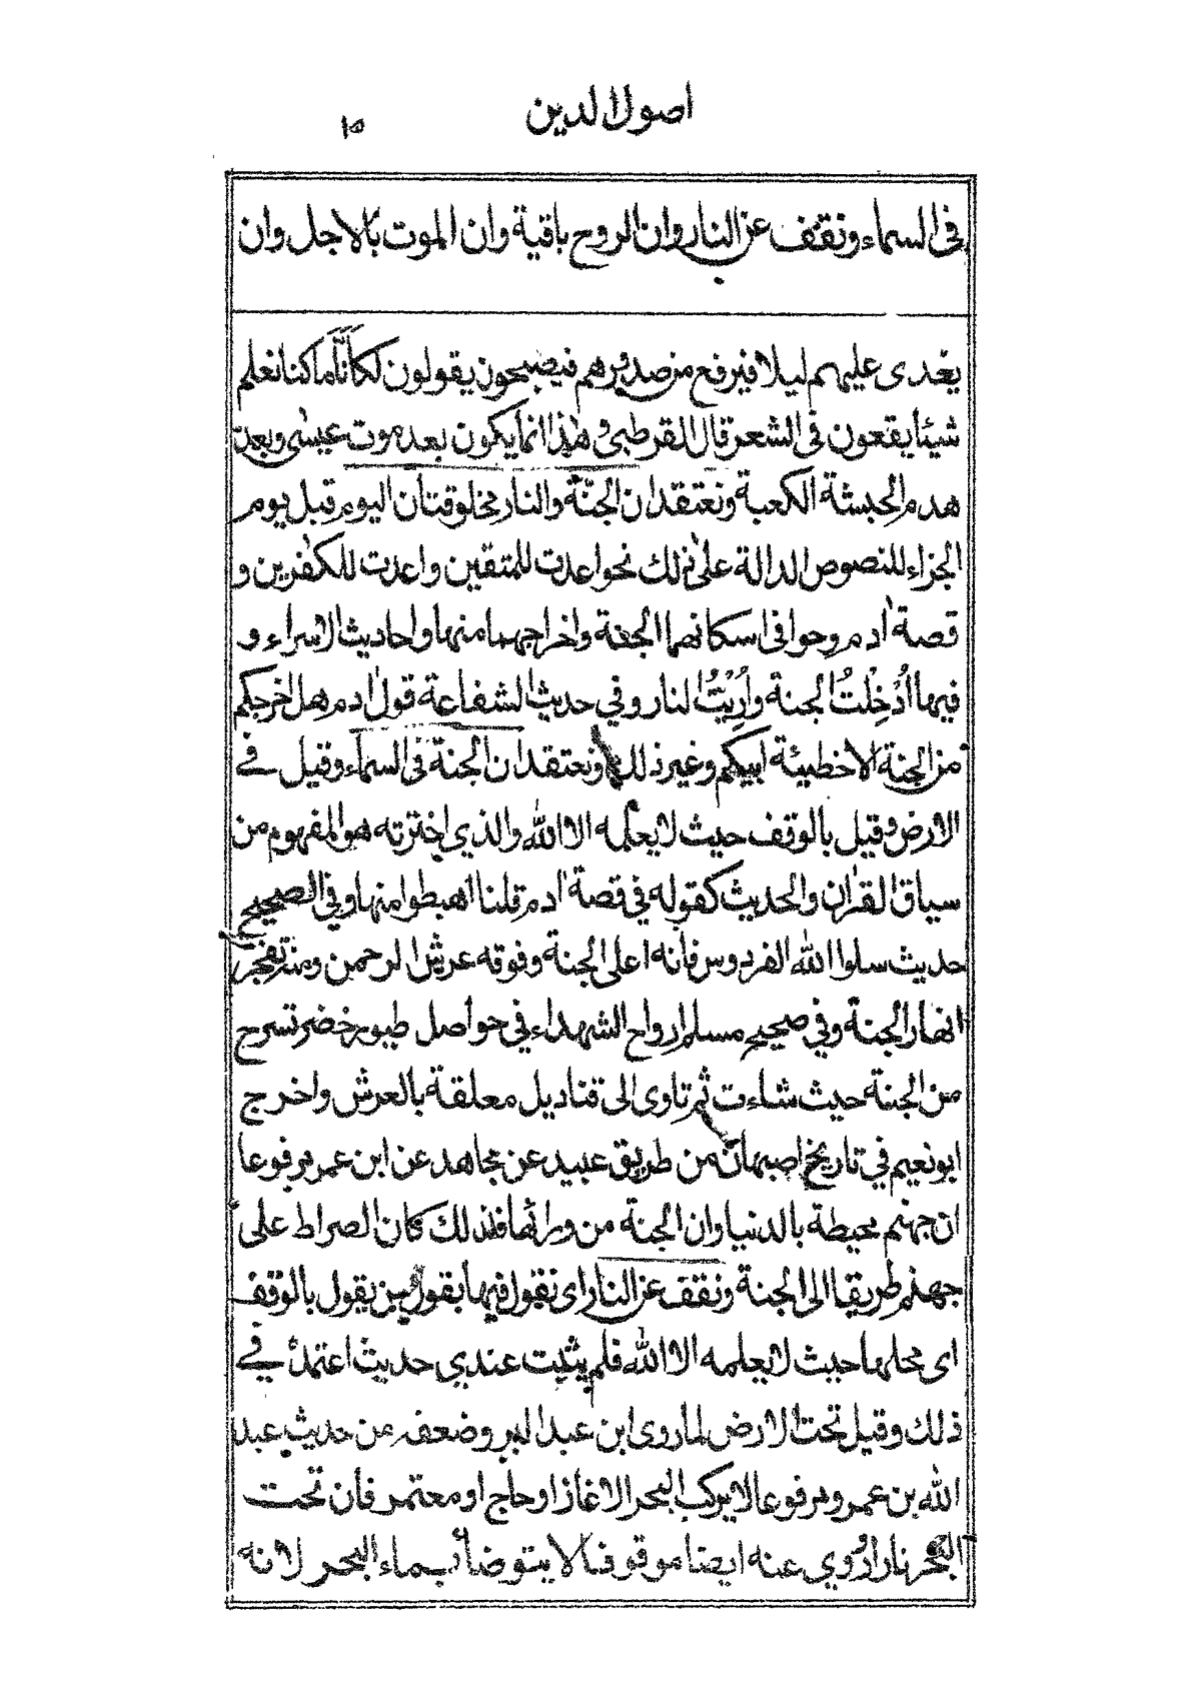 اصول الدين
١٥
فى السماء ونقف عن النار وان الروح باقية وان الموت بالاجل وان
يغدى عليهم ليلا فيرفع من صدورهم فيصبحون يقولون لكأنّا ما كنا نعلم
شيئا يقعون فى الشعر قال القرطبى وهذا انما يكون بعد موت عيسى وبعد
هدم الحبشة الكعبة ونعتقد ان الجنّة والنار مخلوقتان اليوم قبل يوم
الجزاء للنصوص الدالة على ذلك نحو اعدت للمتقين واعدت للكفرين و
قصة ادم وحوا فى اسكانهما الجنة واخراجهما منها واحاديث الاسراء و
فيها أُدْخِلْتُ الجنة وأُرِيْتُ النار وفي حديث الشفاعة قول ادم هل اخرجكم
من الجنة الا خطيئة ابيكم وغير ذلك ونعتقد ان الجنة فى السماء وقيل فے
الارض وقيل بالوقف حيث لا يعلمه الا الله والذي اخترته هو المفهوم من
سياق القران والحديث كقوله في قصة ادم قلنا اهبطوا منها وفي الصحيح
حديث سلوا الله الفردوس فانه اعلى الجنة وفوقه عرش الرحمن ومنه تفجر
انهار الجنة وفي صحيح مسلم ارواح الشهداء في حواصل طيور خضر تسرح
من الجنة حيث شاءت ثم تاوى الى قناديل معلقة بالعرش واخرج
ابو نعيم في تاريخ اصبهان من طريق عبيد عن مجاهد عن ابن عمر مرفوعا
ان جهنم محيطة بالدنيا وان الجنة من ورائها فلذلك كان الصراط على
جهنم طريقا الى الجنة ونقف عن النار اى نقول فيها بقول من يقول بالوقف
اى محلها حيث لا يعلمه الا الله فلم يثبت عندي حديث اعتمده فے
ذلك وقيل تحت الارض لما روى ابن عبد البر وضعفه من حديث عبد
الله بن عمرو مرفوعا لا يركب البحر الا غاز او حاج او معتمر فان تحت
البحر نارا وروي عنه ايضا موقوفا لا يتوضأ بماء البحر لانه